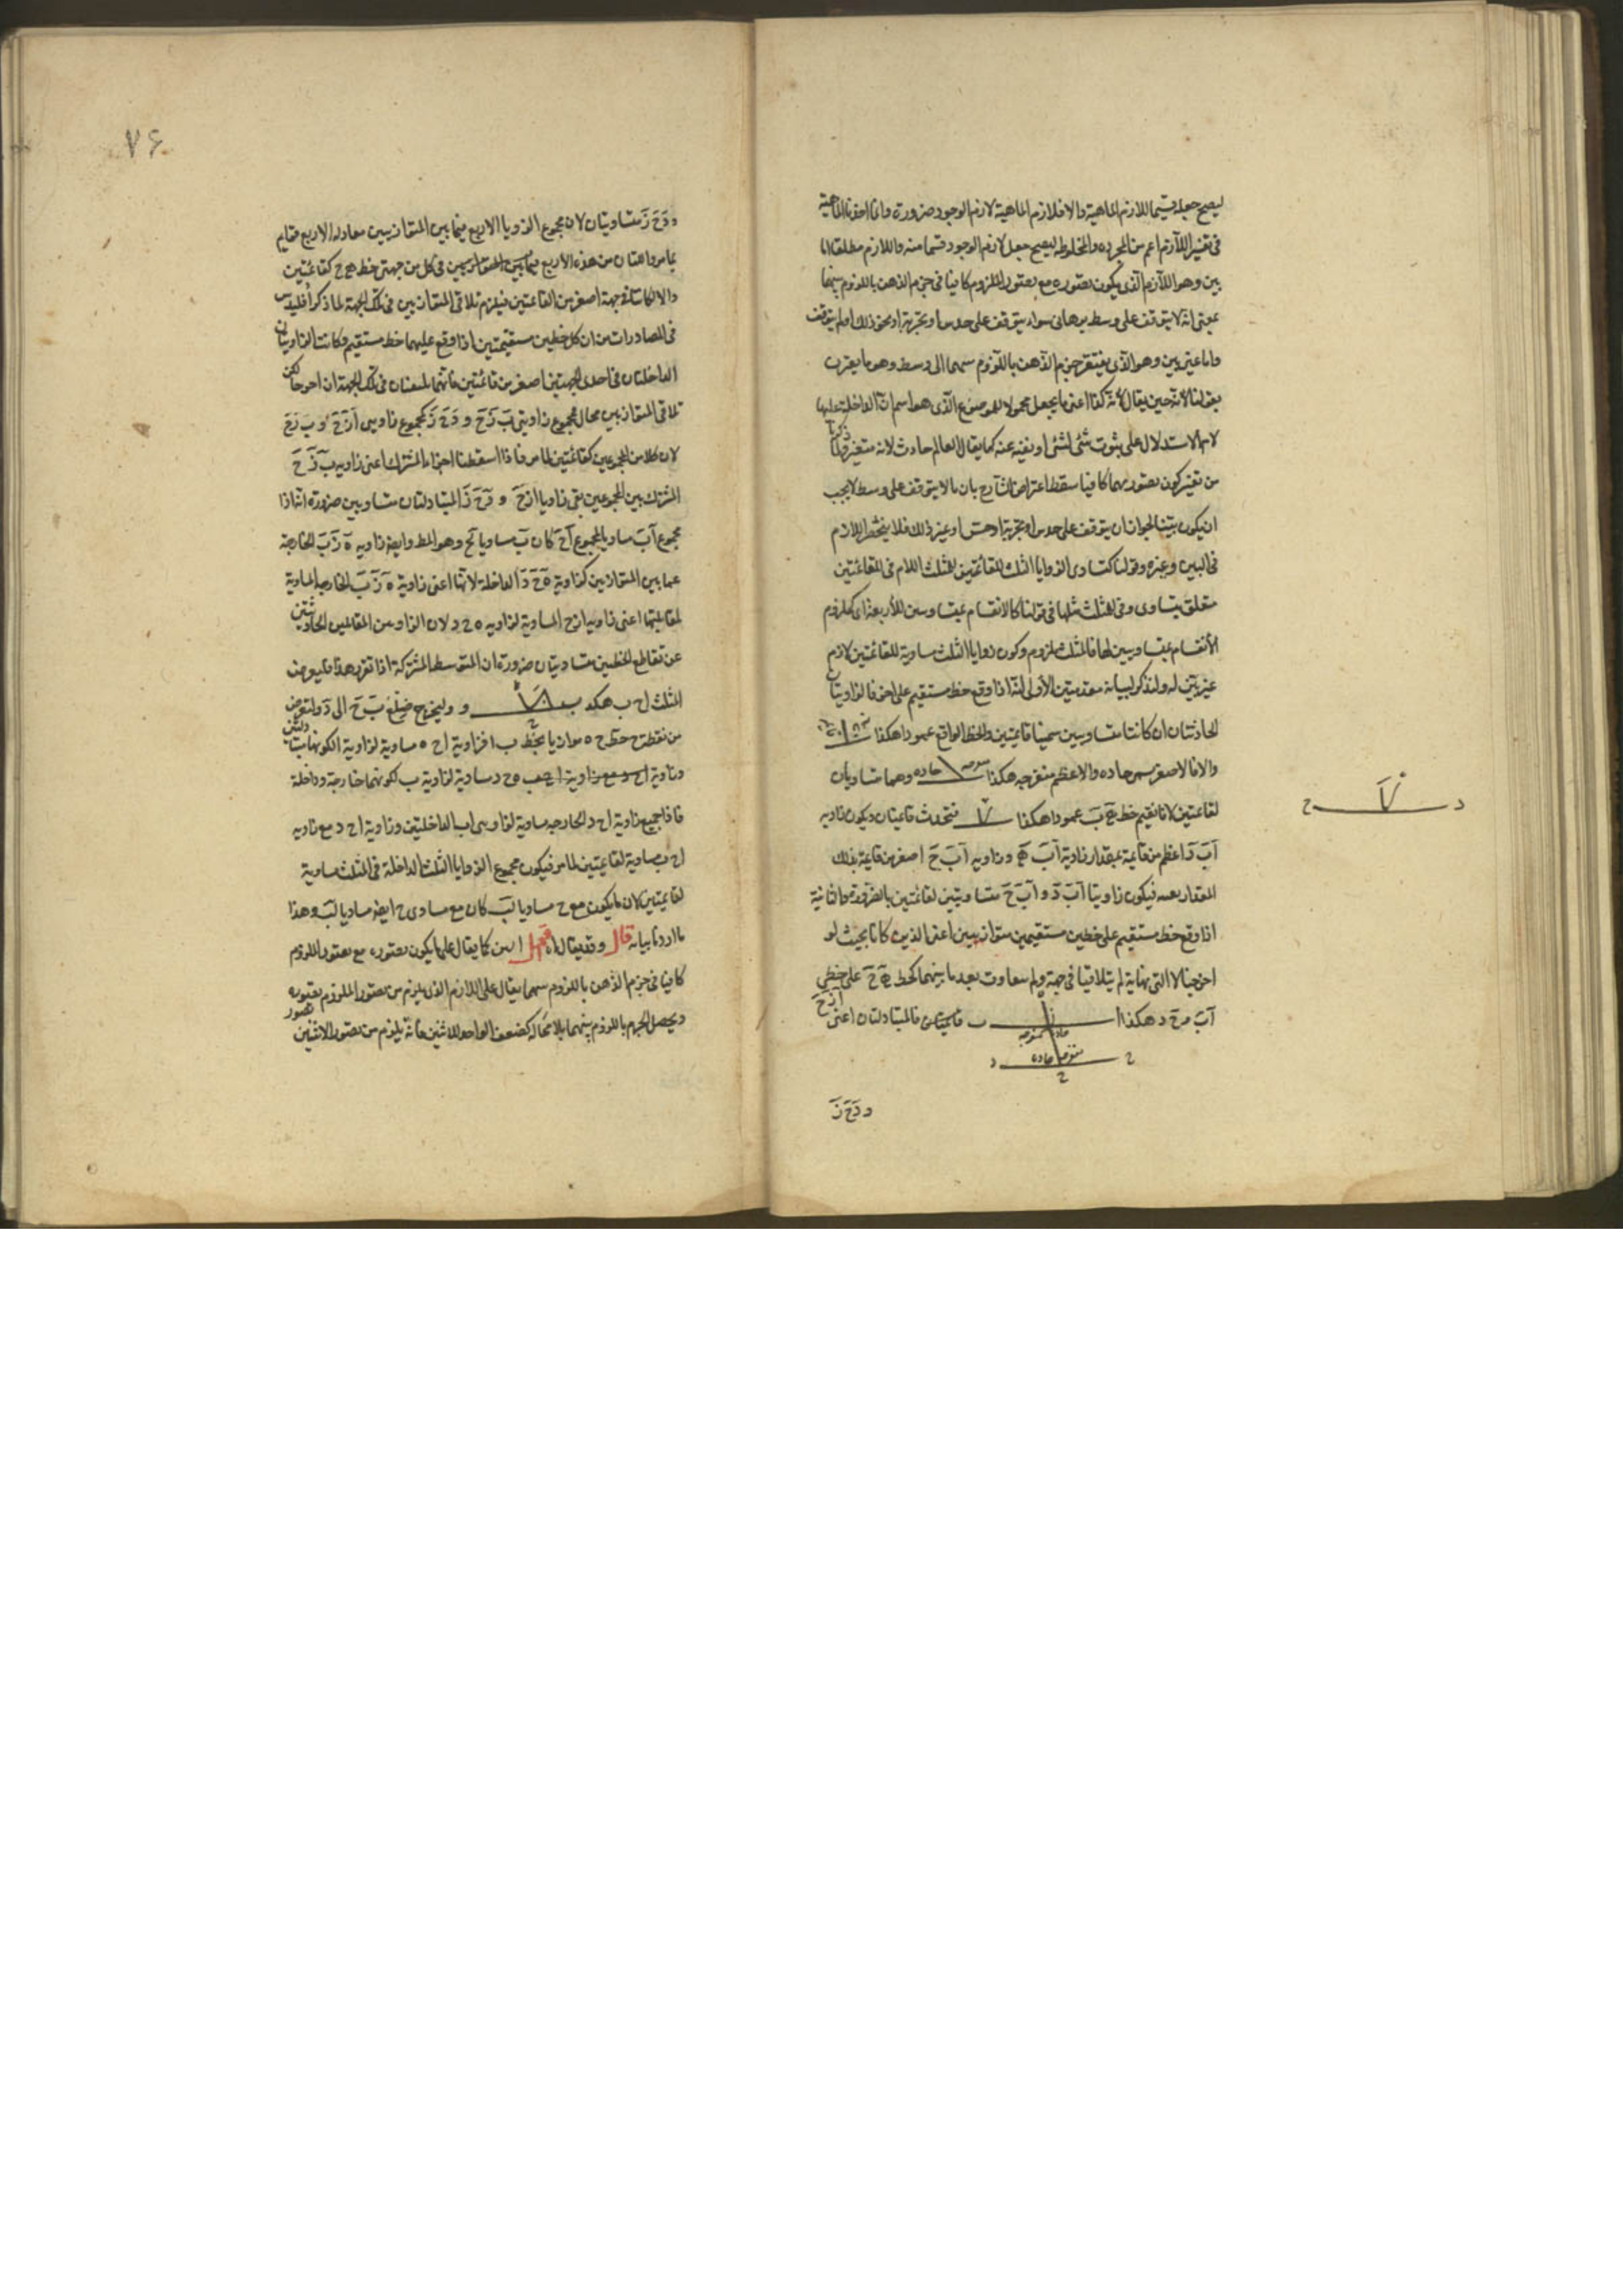 ليصح جعله قسيما للازم الماهية والا فلازم الماهية لازم الوجود ضرورة وانما اخذنا الماهية
في تفسير اللازم اعم من المجردة والمخلوطة ليصح جعل لازم الوجود قسما منه واللازم مطلقا اما
بين وهو اللازم الذي يكون تصوره مع تصور الملزوم كافيا في جزم الذهن باللزوم بينهما
بمعنى انه لا يتوقف على وسط برهاني سواء يتوقف على حدس او تجربة او نحو ذلك او لم يتوقف
واما غير بين وهو الذي يفتقر جزم الذهن باللزوم بينهما الى وسط وهو ما يقرن
بقولنا لانه حين يقال لانه كذا اعني ما يجعل محمولا للموضوع الذي هو اسم ان الداخلة عليها
لام الاستدلال على ثبوت شئ لشئ او نفيه عنه كما يقال العالم حادث لانه متغير
من تفسير كون تصورهما كافيا سقط اعتراض الشارح بان ما لا يتوقف على وسط لا يجب
ان يكون بينا لجواز ان يتوقف على حدس او تجربة او حس او غير ذلك فلا ينحصر اللازم
في البين وغيره وقولنا كتساوي الزوايا الثلث للقائمتين للمثلث اللام في للقائمتين
متعلق بتساوي وفي للمثلث مثلها في قولنا كالانقسام بمتساويين للأربعة اي كلزوم
الأنقسام بمتساويين لها فالمثلث ملزوم وكون زوايا الثلث مساوية للقائمتين لازم
غير بين له ولنذكر لبيانه مقدمتين الأولى انه اذا وقع خط مستقيم على اخر فالزاويتان
الحادثتان ان كانتا متساويتين سميتا قائمتين والخط الواقع عمودا هكذا
والا فالاصغر يسمى حاده والاعظم منفرجه هكذا منفرجه حاده وهما متساويان
لقائمتين لانا نقيم خط ه ب عمودا هكذا فتحدث قائمتان ويكون زاويه
ا ب د اعظم من قائمة بمقدار زاوية ا ب ه وزاويه ا ب ح اصغر من قائمة بذلك
المقدار بعينه فيكون زاويتا ا ب د و ا ب ح متساويتين لقائمتين بالضرورة والثانية
اذا وقع خط مستقيم على خطين مستقيمين متوازيين اعني الذين كانا بحيث لو
اخرجا لا الى نهاية لم يتلاقيا في جهة ولم يتفاوت بعد ما بينهما كخط ه ح على خطي
ا ب و ح د هكذا ا ب فالمتبادلتان اعني ا ز ح
حاده منفرجه
منفرجه حاده
ح د
و د ح ز
د ح
٧۶
و د ح ز متساويتان لان مجموع الزوايا الاربع فيما بين المتوازيين معادله لاربع قوايم
لما مر واثنتان من هذه الاربع فيما بين المتوازيين في كل من جهتي خط ه ح كقائمتين
والا لكانتا في جهة اصغر من القائمتين فيلزم تلاقي المتوازيين في تلك الجهة لما ذكر أقليدس
في المصادرات من ان كل خطين مستقيمين اذا وقع عليهما خط مستقيم وكانت الزاويتان
الداخلتان في احدى الجهتين اصغر من قائمتين فانهما يلتقيان في تلك الجهة ان اخرجا لكن
تلاقي المتوازيين محال فمجموع زاويتي ب ز ح و د ح ز كمجموع زاويتي ا ز ح و ب ز ح
لان كلا من المجموعين كقائمتين لما مر فاذا اسقطنا الجزء المشترك اعني زاويه ب ز ح
المشترك بين المجموعين بقى زاويا ا ز ح و د ح ز المتبادلتان متساويين ضرورة انه اذا
مجموع اب ساويا لمجموع اح كان ب مساويا لح وهو المط وايضا زاويه ه ز ب الخارجة
عما بين المتوازيين كزاوية ه ح د الداخلة لانها اعني زاوية ه ز ب الخارجه المساوية
لمقابلتها اعني زاويه ا ز ح المساوية لزاويه ه ح د لان الزاويتين المتقابلتين الحادثتين
عن تقاطع الخطين متساويتان ضرورة ان المتوسط المشتركة اذا تقرر هذا فليعرض
المثلث ا ح ب هكذا ب و وليخرج ضلع ب ح الى د ولنعرض
من نقطة ح خط ح ه موازيا لخط ب ا فزاوية ا ح ه مساوية لزاوية ا لكونهما متبادلتين
وزاوية ه ح د مساوية لزاوية ب لكونهما خارجة وداخلة
فاذا جميع زاوية ا ح د الخارجه مساوية لزاويتى ا ب الداخلتين وزاوية ا ح د مع زاويه
ا ح ب مساوية لقائمتين لما مر فيكون مجموع الزوايا الثلث الداخلة في المثلث مساوية
لقائمتين لان ما يكون مع ح مساويا لب كان مع مساوي ح ايضا مساويا لب وهذا
ما اردنا بيانه قال وقد يقال اه اقول البين كما يقال على ما يكون تصوره مع تصور الملزوم
كافيا في جزم الذهن باللزوم بينهما يقال على اللازم الذي يلزم من تصور الملزوم تصوره
ويحصل الجزم باللزوم بينهما بلا محالة كضعف الواحد للاثنين فانه يلزم من تصور الاثنين تصور